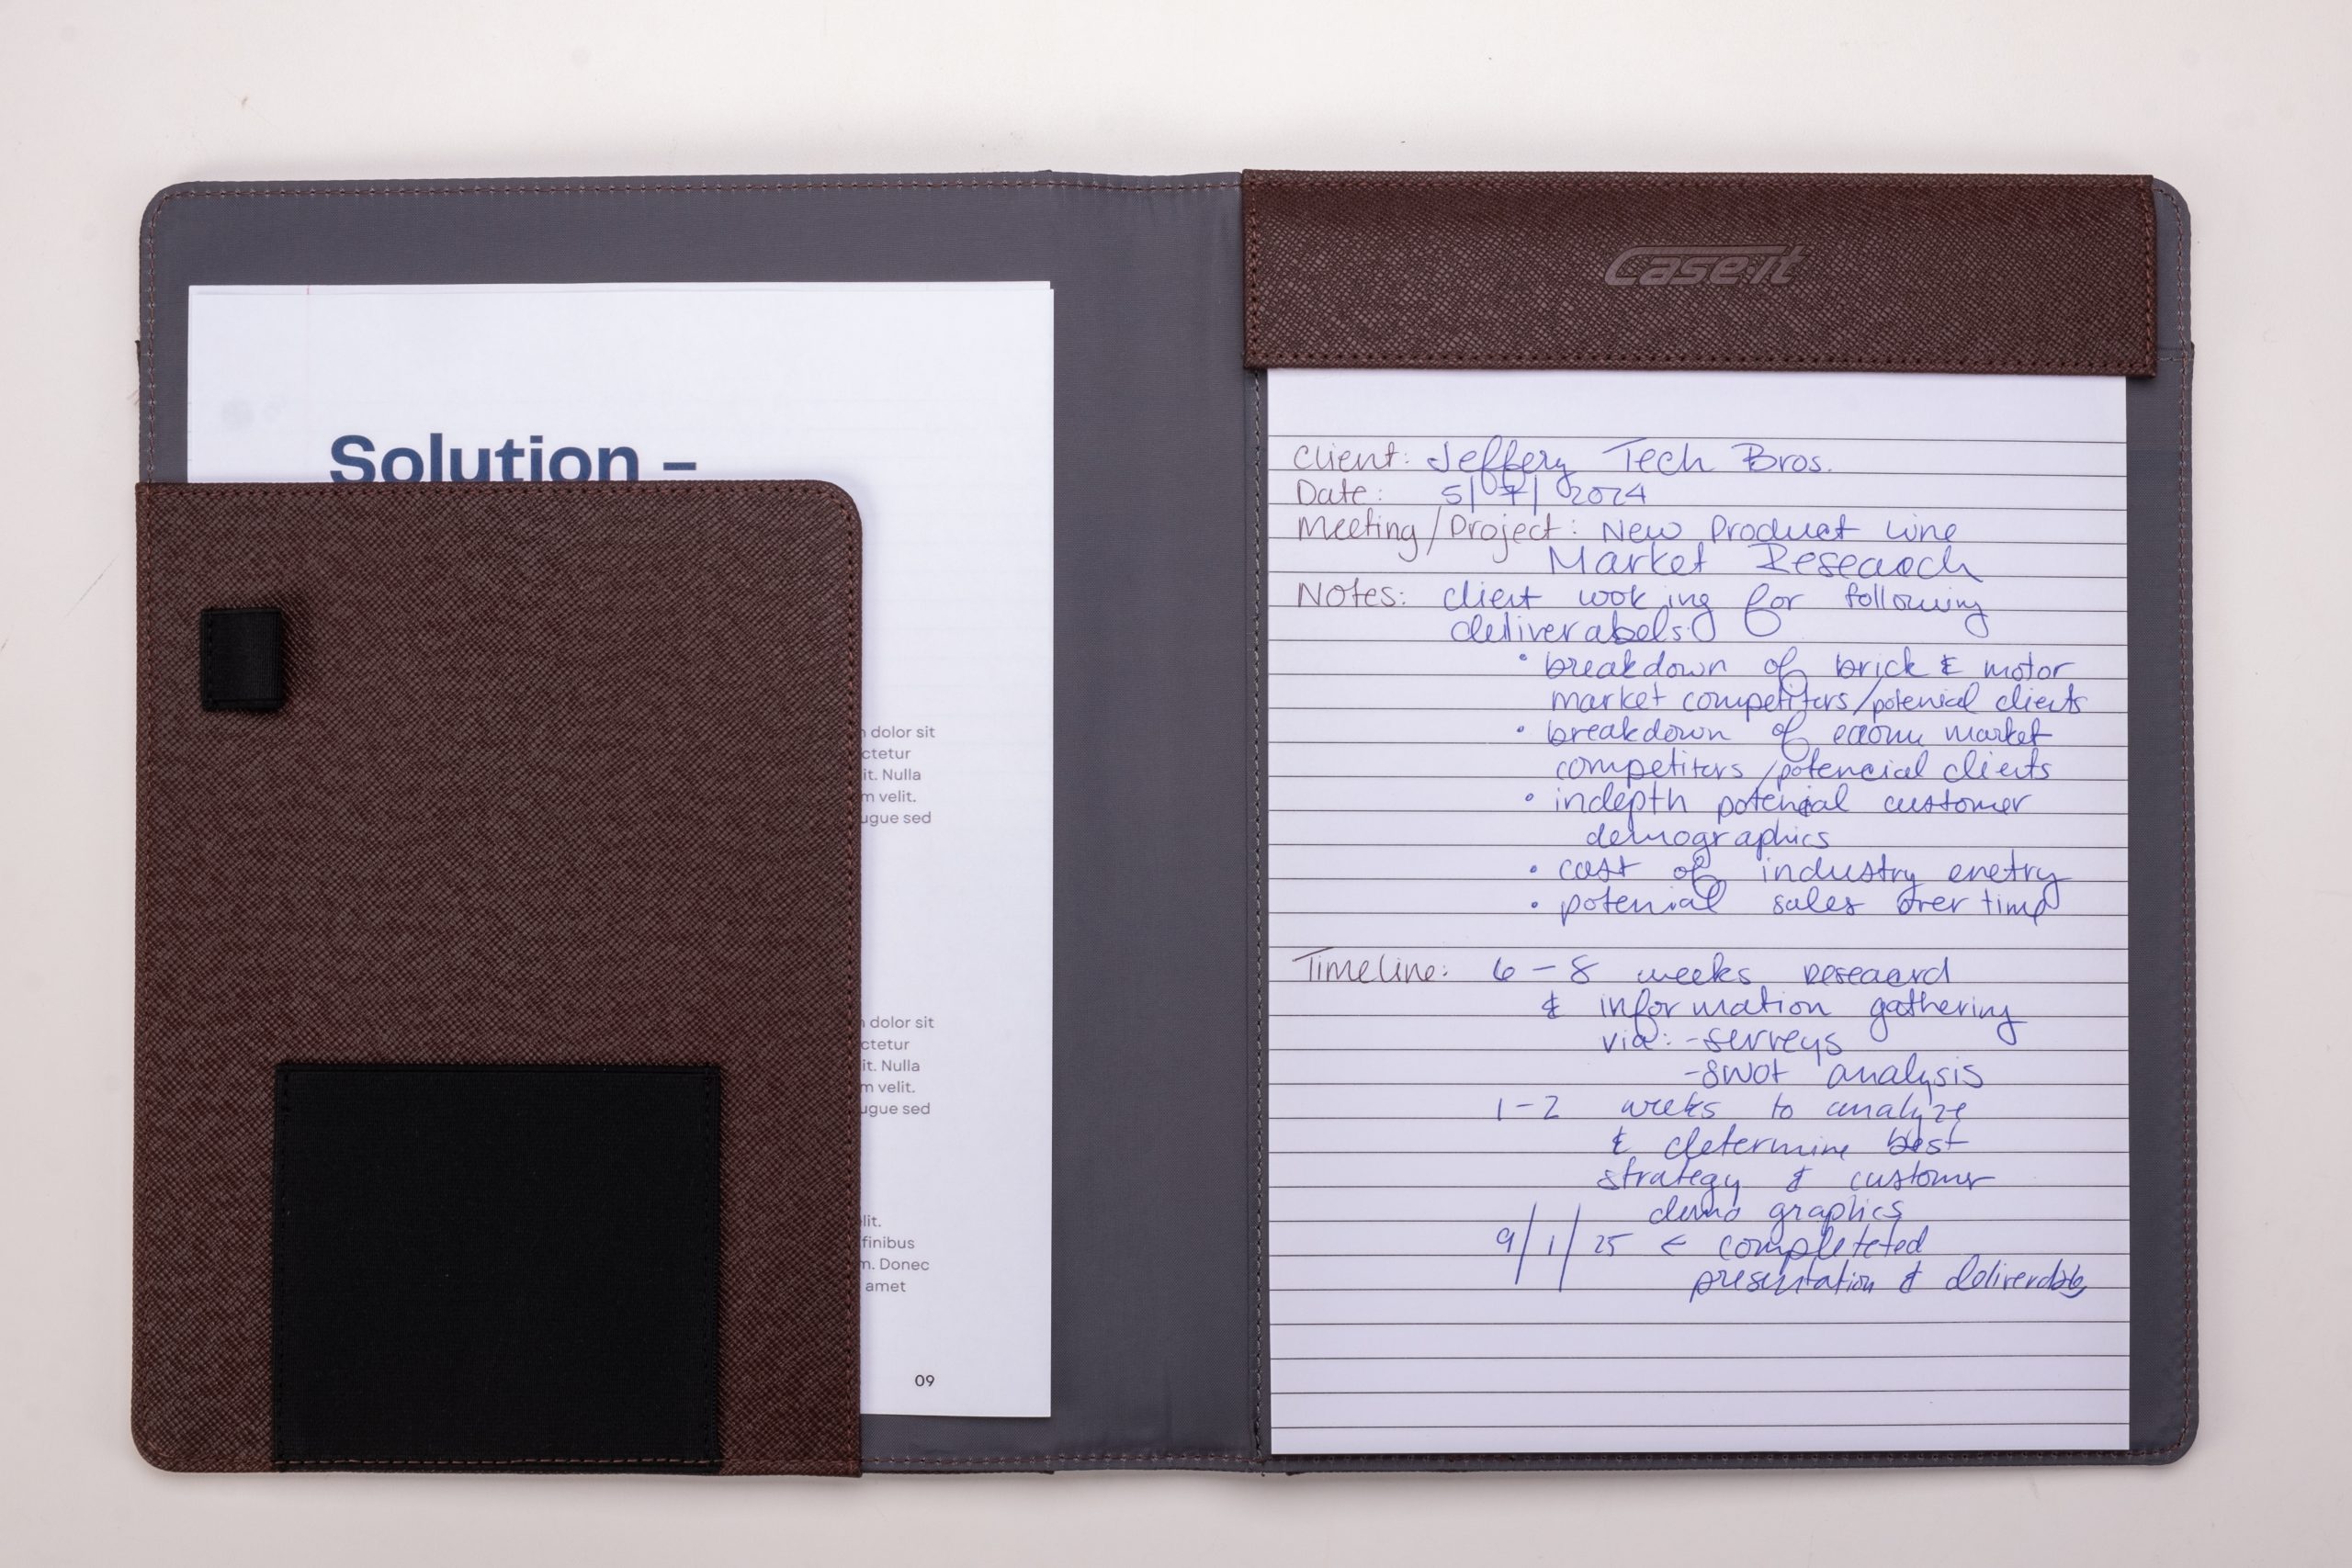 Solution –
dolor sit
ctetur
it. Nulla
m velit.
ugue sed
dolor sit
ctetur
it. Nulla
m velit.
ugue sed
lit.
finibus
m. Donec
amet
09
Case·it
Client: Jeffery Tech Bros.
Date: 5/7/2024
Meeting/Project: New Product Line
Market Research
Notes: client looking for following
deliverabels:
• breakdown of brick & motor
market competitors/potenial clients
• breakdown of market
competitors/potencial clients
• indepth potenial customer
demographics
• cost of industry enetry
• potenial sales over time
Timeline: 6-8 weeks research
& information gathering
via: -surveys
-SWOT analysis
1-2 weeks to analyze
& determine best
strategy & customer
demographics
9/1/25 ← completeted
presentation & deliverables